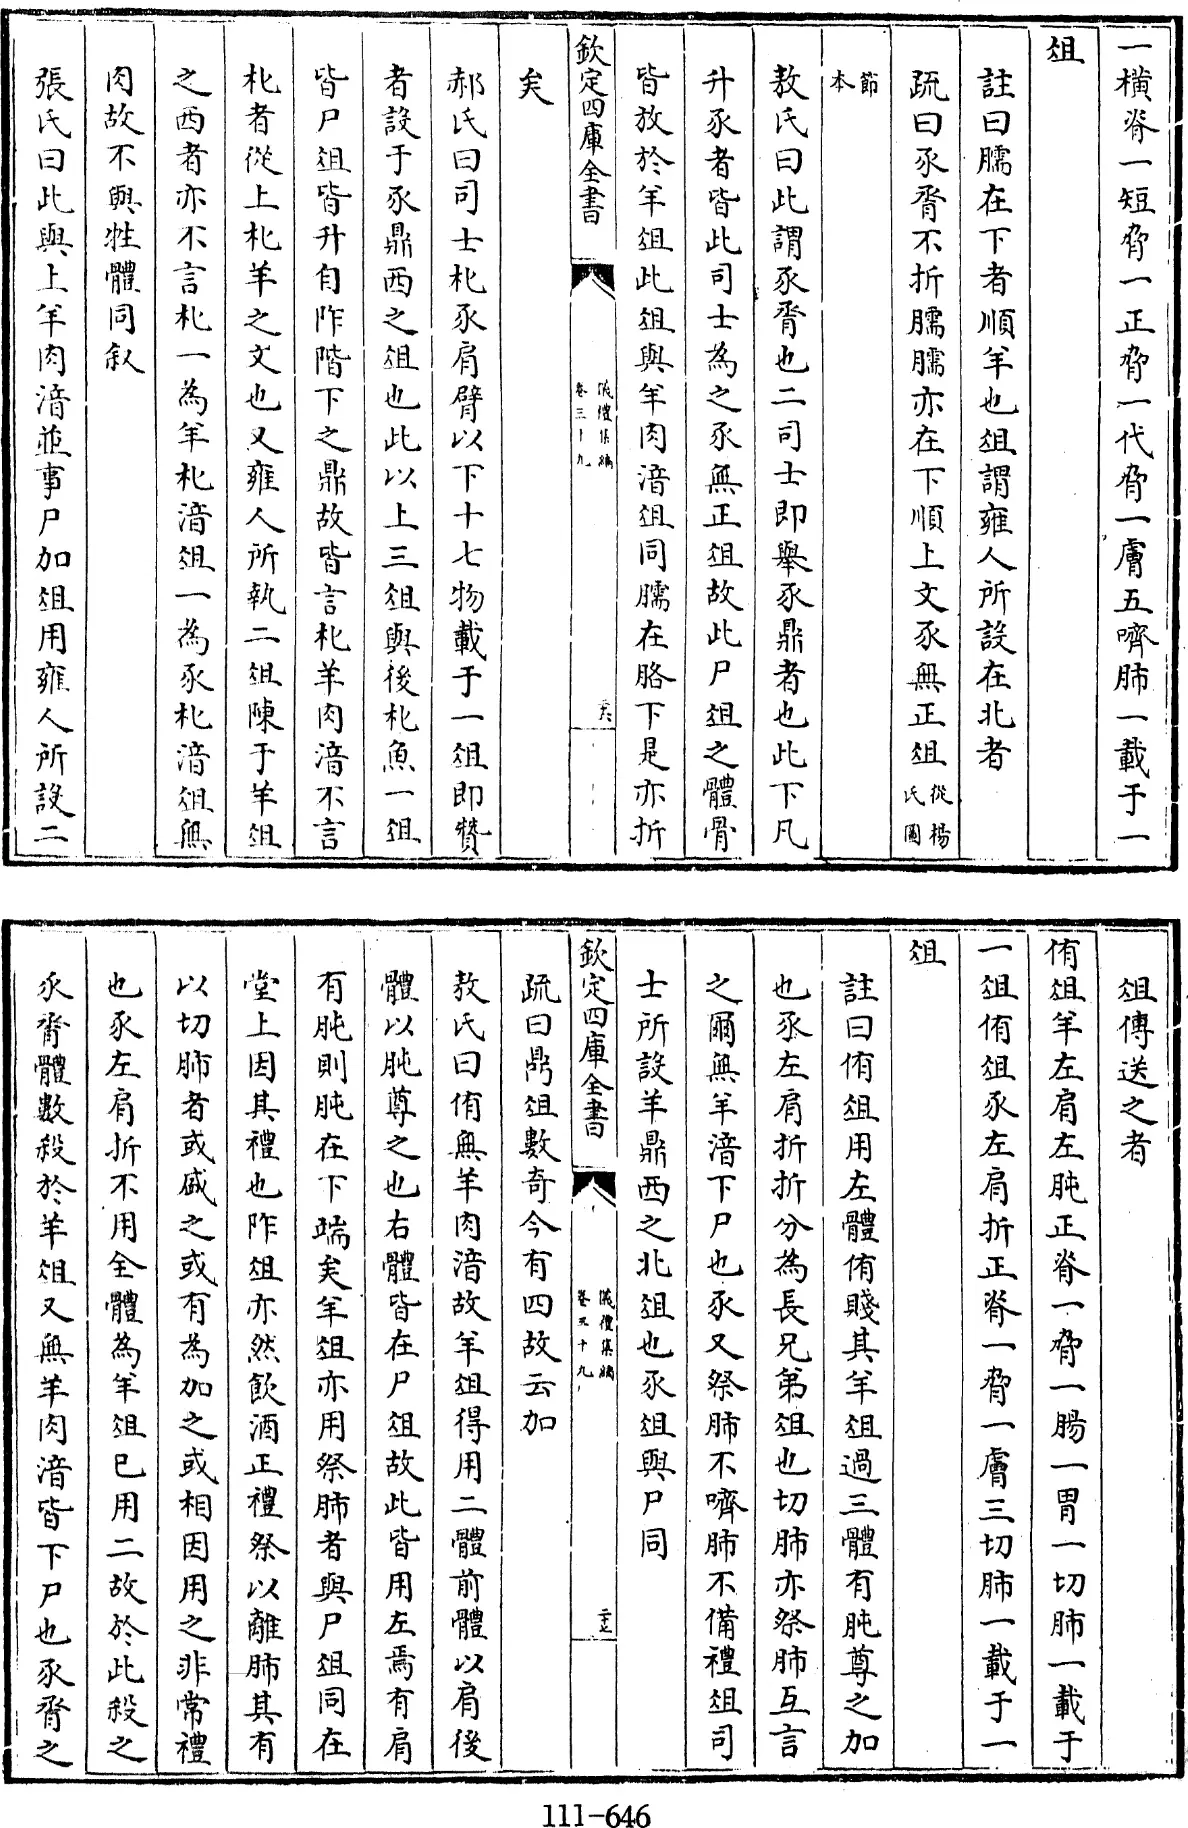 一橫脊一短脅一正脅一代脅一膚五嚌肺一載于一
俎
註曰臑在下者順羊也俎謂雍人所設在北者
疏曰豕脀不折臑臑亦在下順上文豕無正俎從楊氏圖
節本
敖氏曰此謂豕脀也二司士即舉豕鼎者也此下凡
升豕者皆此司士為之豕無正俎故此尸俎之體骨
皆放於羊俎此俎與羊肉湆俎同臑在胳下是亦折
欽定四庫全書
儀禮集編
卷三十九
矣
郝氏曰司士朼豕肩臂以下十七物載于一俎即贊
者設于豕鼎西之俎也此以上三俎與後朼魚一俎
皆尸俎皆升自阼階下之鼎故皆言朼羊肉湆不言
朼者從上朼羊之文也又雍人所執二俎陳于羊俎
之西者亦不言朼一為羊朼湆俎一為豕朼湆俎無
肉故不與牲體同敘
張氏曰此與上羊肉湆並事尸加俎用雍人所設二
俎傳送之者
侑俎羊左肩左肫正脊一脅一腸一胃一切肺一載于
一俎侑俎豕左肩折正脊一脅一膚三切肺一載于一
俎
註曰侑俎用左體侑賤其羊俎過三體有肫尊之加
也豕左肩折折分為長兄弟俎也切肺亦祭肺互言
之爾無羊湆下尸也豕又祭肺不嚌肺不備禮俎司
士所設羊鼎西之北俎也豕俎與尸同
欽定四庫全書
儀禮集編
卷三十九
疏曰鼎俎數奇今有四故云加
敖氏曰侑無羊肉湆故羊俎得用二體前體以肩後
體以肫尊之也右體皆在尸俎故此皆用左焉有肩
有肫則肫在下端矣羊俎亦用祭肺者與尸俎同在
堂上因其禮也阼俎亦然飲酒正禮祭以離肺其有
以切肺者或盛之或有為加之或相因用之非常禮
也豕左肩折不用全體為羊俎已用二故於此殺之
豕脀體數殺於羊俎又無羊肉湆皆下尸也豕脀之
111-646